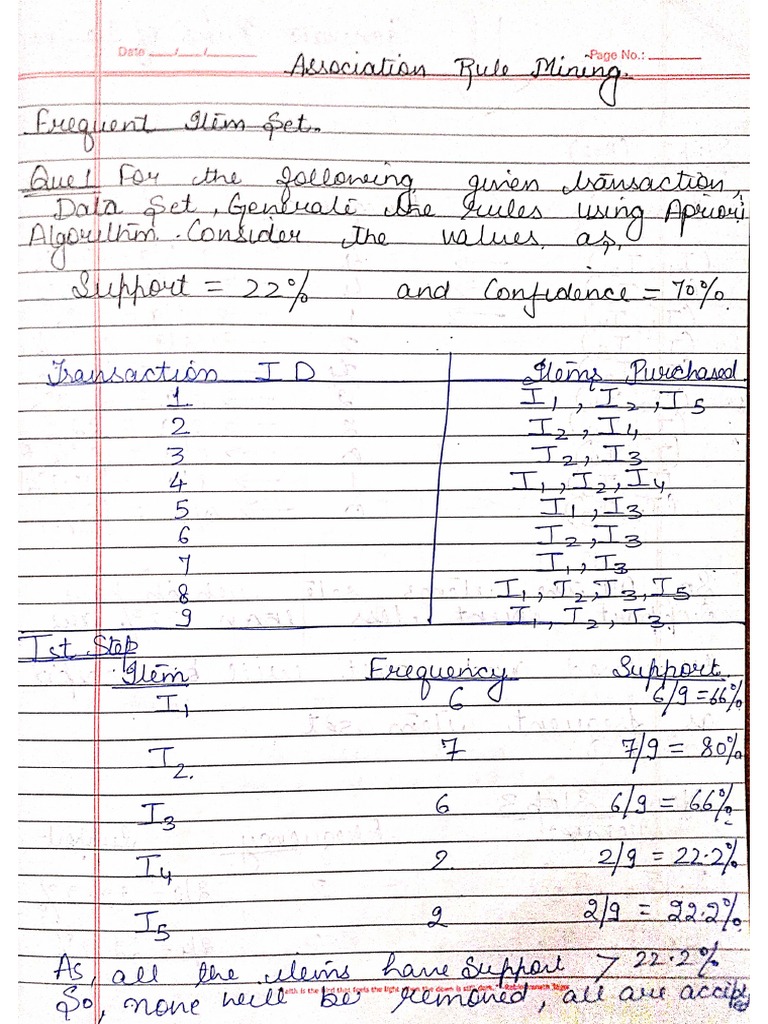 Date ___/___/___ Page No.: ___
Association Rule Mining.
Frequent Item Set.
Que1 For the following given transaction,
Data Set, Generate the rules using Apriori
Algorithm. Consider the values as,
Support = 22% and Confidence = 70%.
Transaction ID Items Purchased
1 I1, I2, I5
2 I2, I4
3 I2, I3
4 I1, I2, I4
5 I1, I3
6 I2, I3
7 I1, I3
8 I1, I2, I3, I5
9 I1, I2, I3.
Ist Step
Item Frequency Support
I1 6 6/9 = 66%
I2. 7 7/9 = 80%
I3 6 6/9 = 66%
I4 2 2/9 = 22.2%
I5 2 2/9 = 22.2%
As, all the items have support > 22.2%
So, none will be removed, all are